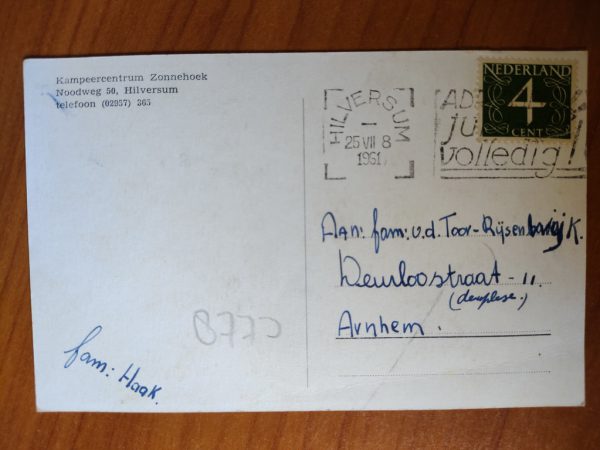 Kampeercentrum Zonnehoek
Noodweg 50, Hilversum
telefoon (02957) 365
HILVERSUM
25 VII 8
1961
volledig!
NEDERLAND
4
CENT
Aan: fam: v.d. Toor-Rijsen
straat - 11.
Arnhem.
fam: Haak.